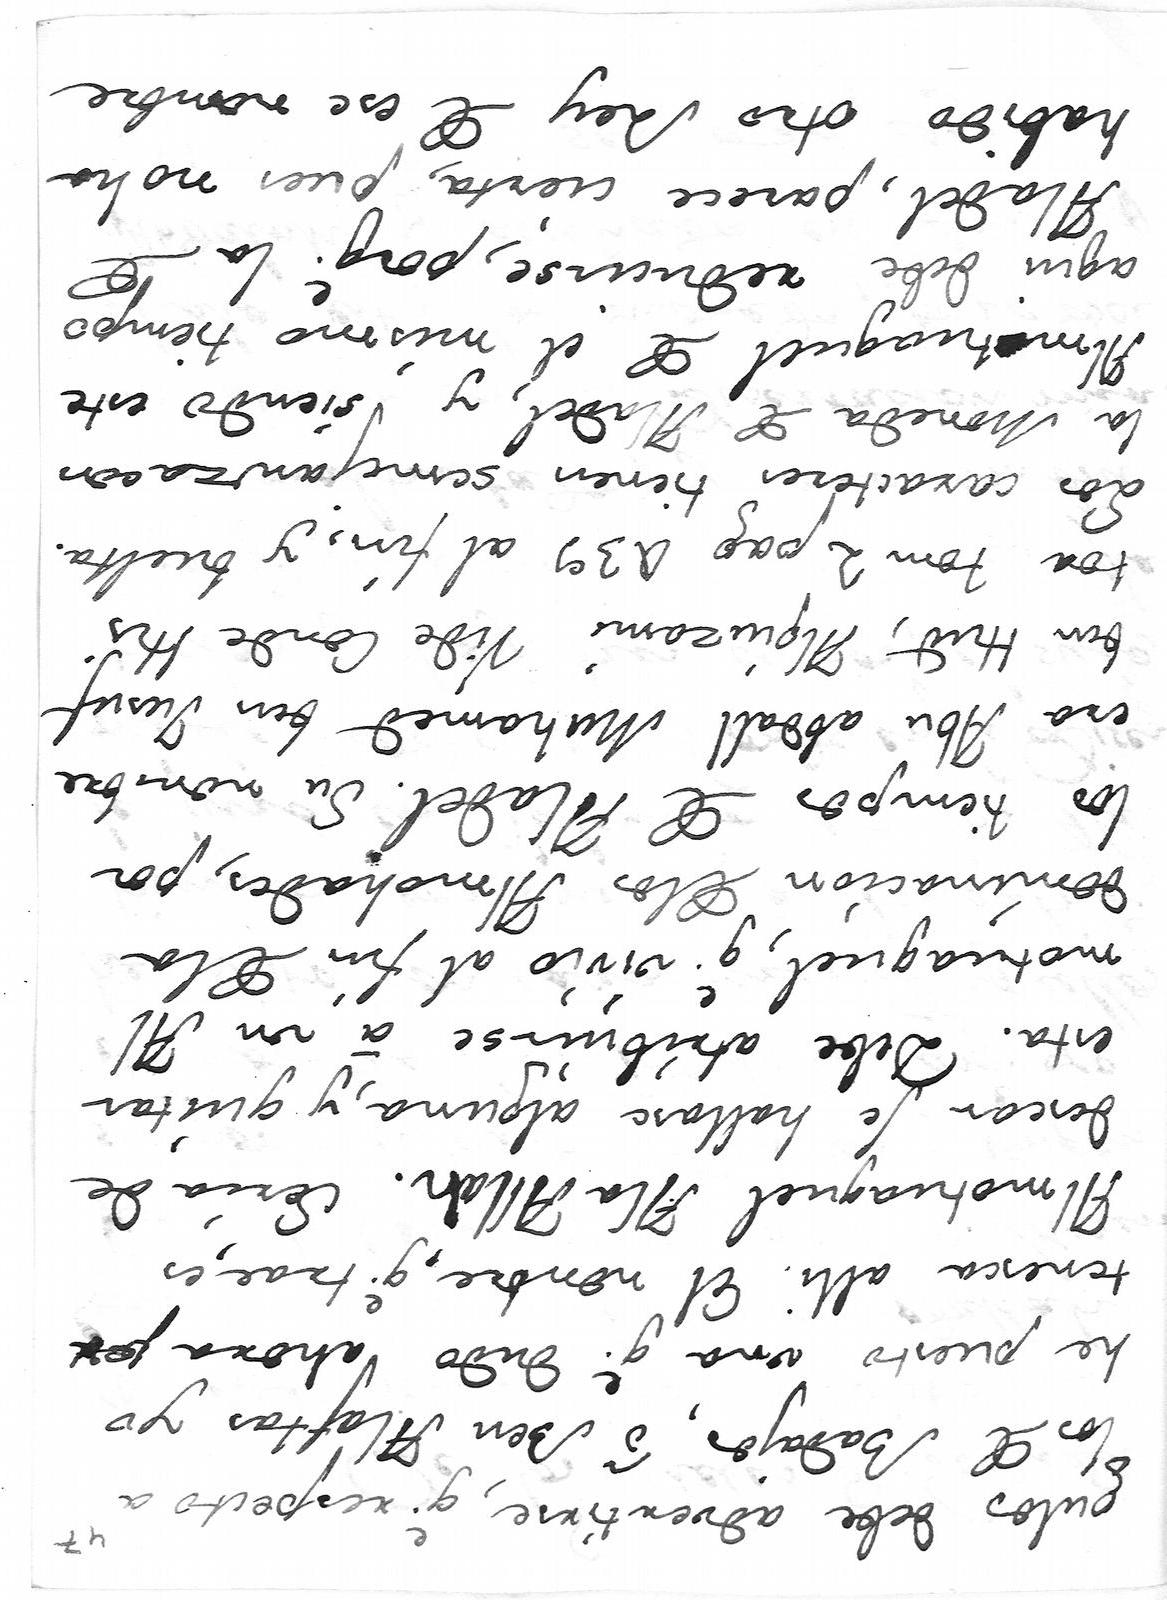 47
gulos debe advertirse, q.e respecto a
los de Badajos, ō Ben Alaftas yo
he puesto una q.e dudo ahora per
tenesca alli. El nombre, q.e trae, es
Almotuaquel Ala Allah. Seria de
desear se hallase alguna, y quitar
esta. Debe atribuirse ā un Al
motuaquel, q.e vivió al fin de la
dominacion de los Almohades, por
los tiempos de Aladel. Su nombre
era Abu abdall Muhamed ben Jusuf
ben Hud, Algiuzami Vide Conde His
toa tom 2 pag 439 al fin, y buelta.
Los caracteres tienen semejanza con
la Moneda de Aladel, y siendo este
Almotuaquel de el mismo tiempo
aqui debe reducirse, porq.e la de
Aladel, parece cierta, pues no ha
habido otro Rey de ese nombre